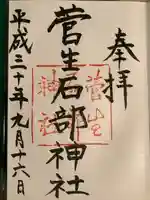 奉拝
菅生石部神社
菅生
神社
平成三十年九月十六日